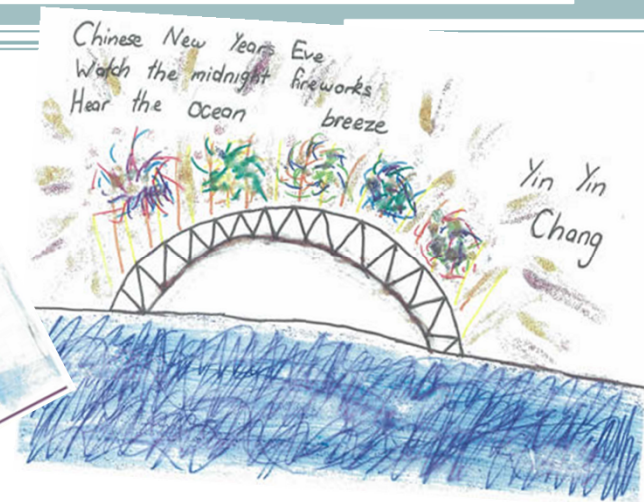 Chinese New Years Eve
Watch the midnight fireworks
Hear the ocean breeze
Yin Yin
Chang